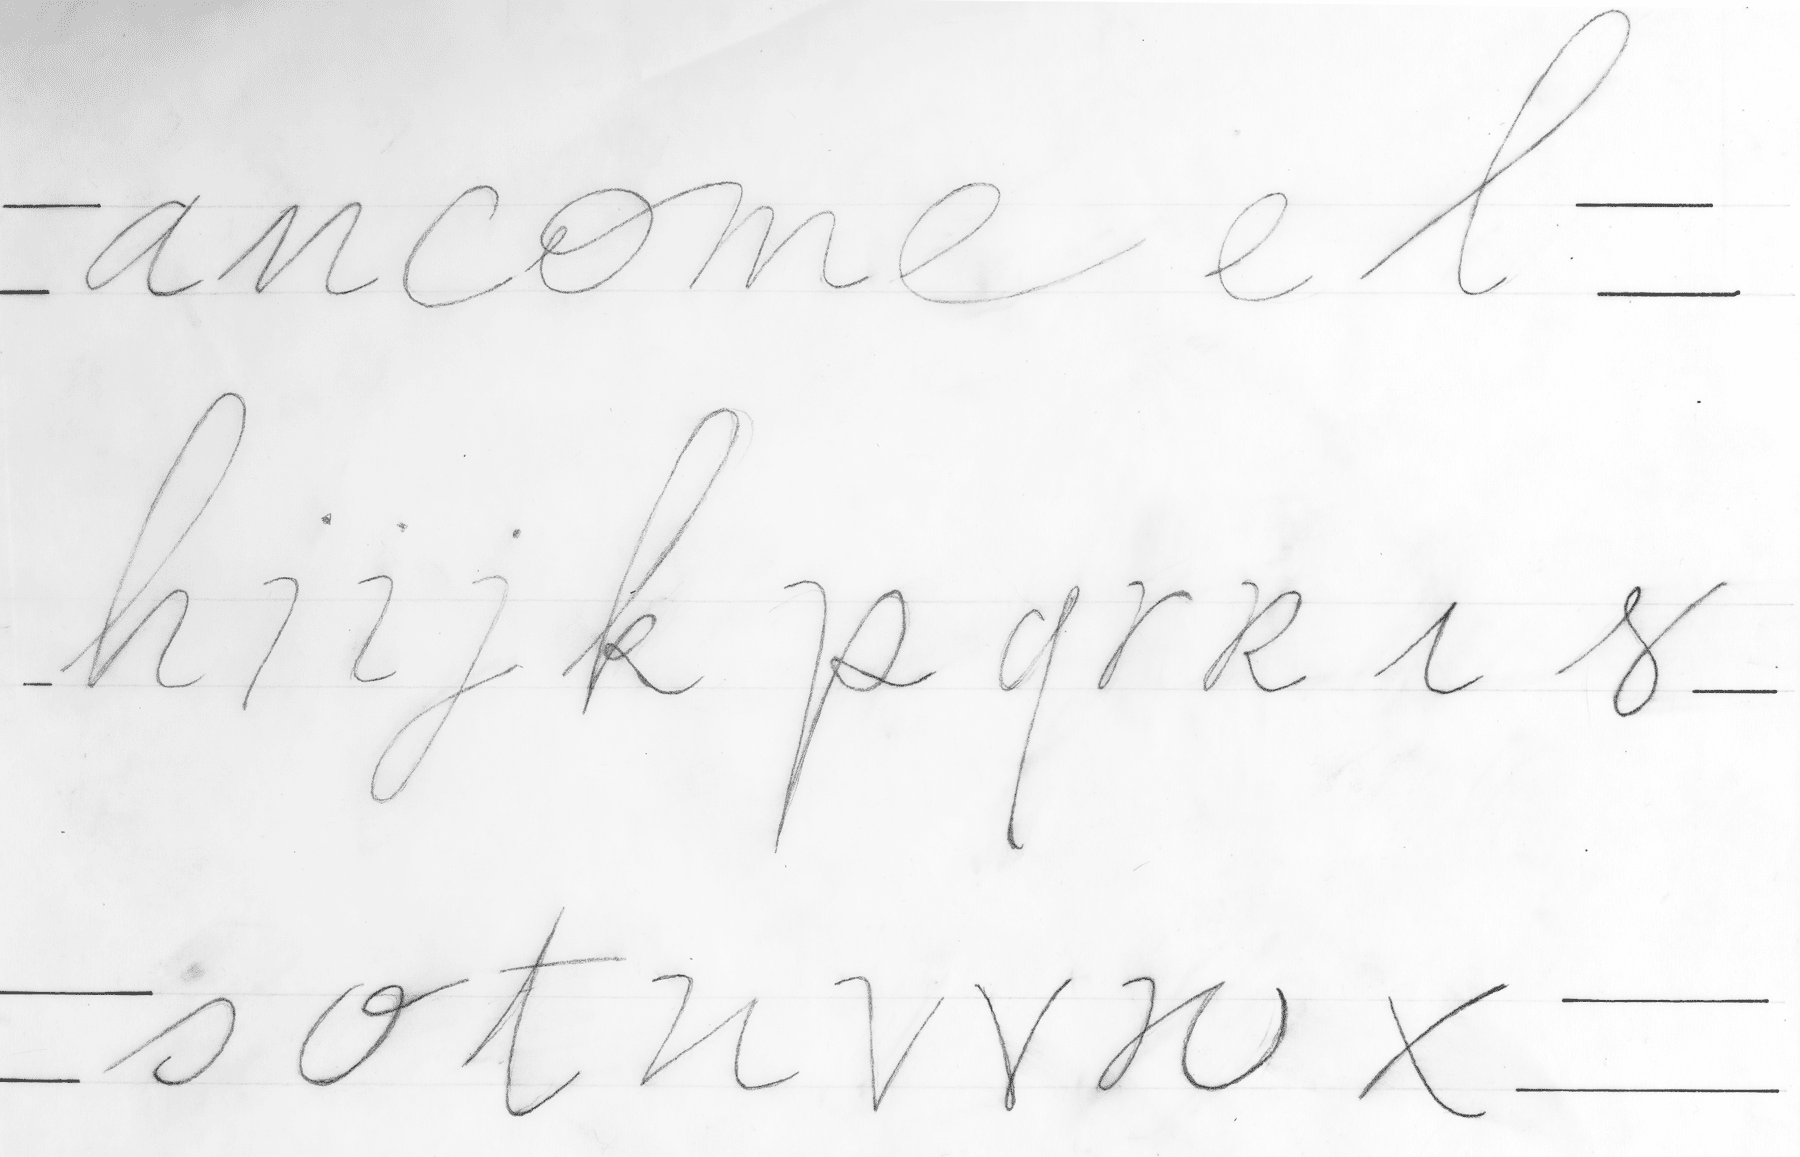 ancome e l
h i i j k p q r r i s
s o t u v v w x